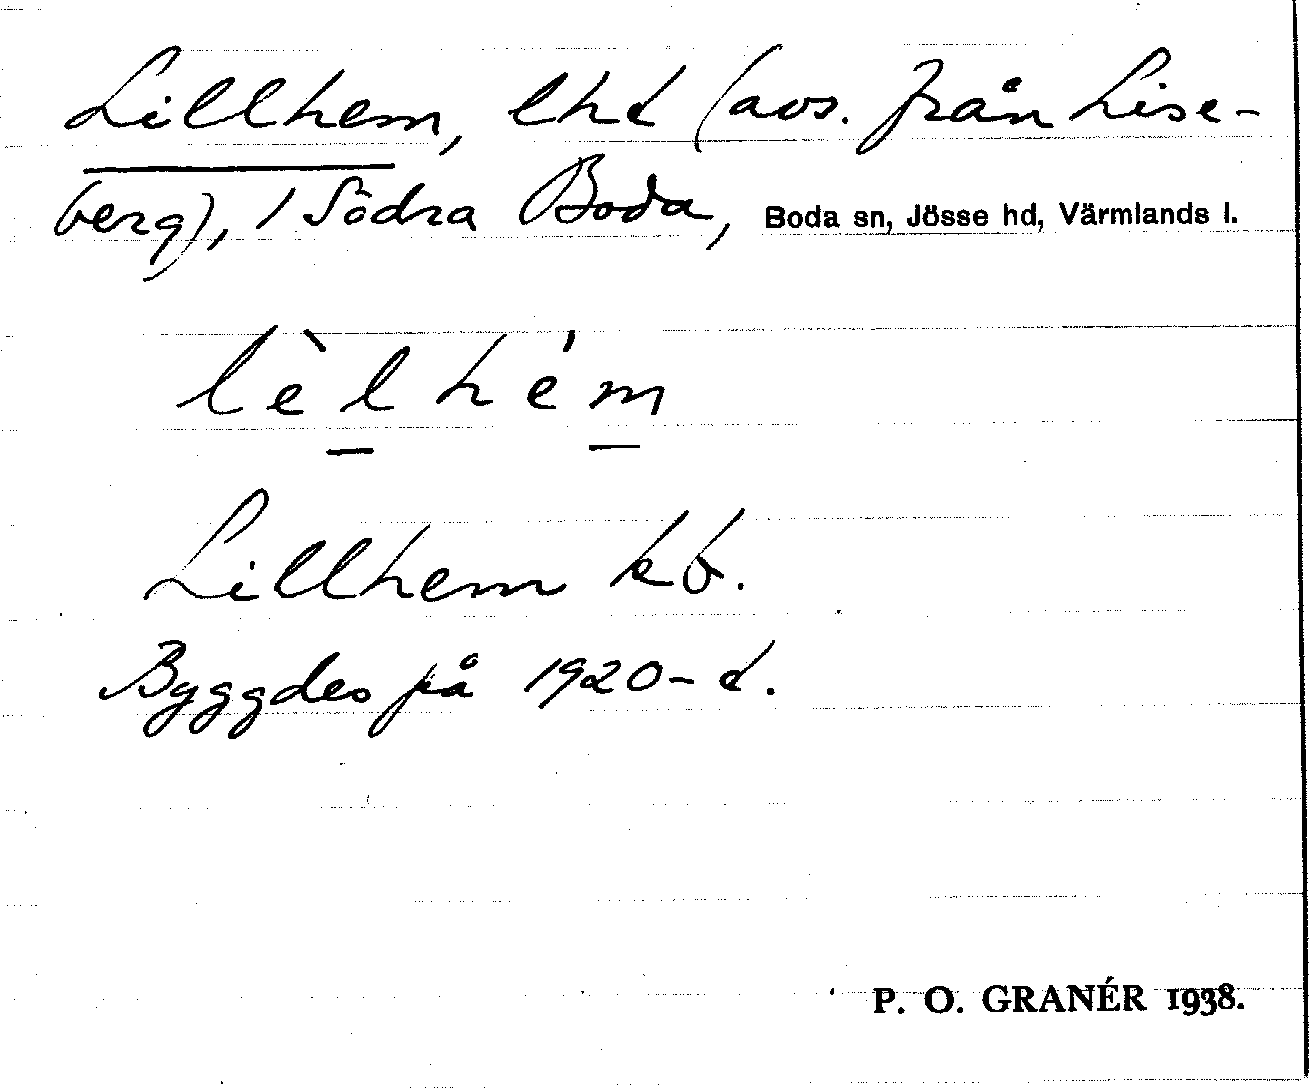 Lillhem, lhd (avs. från Lise-
berg), 1 Södra Boda, Boda sn, Jösse hd, Värmlands l.
lèlhém
Lillhem kb.
Byggdes på 1920-t.
P. O. GRANÉR 1938.